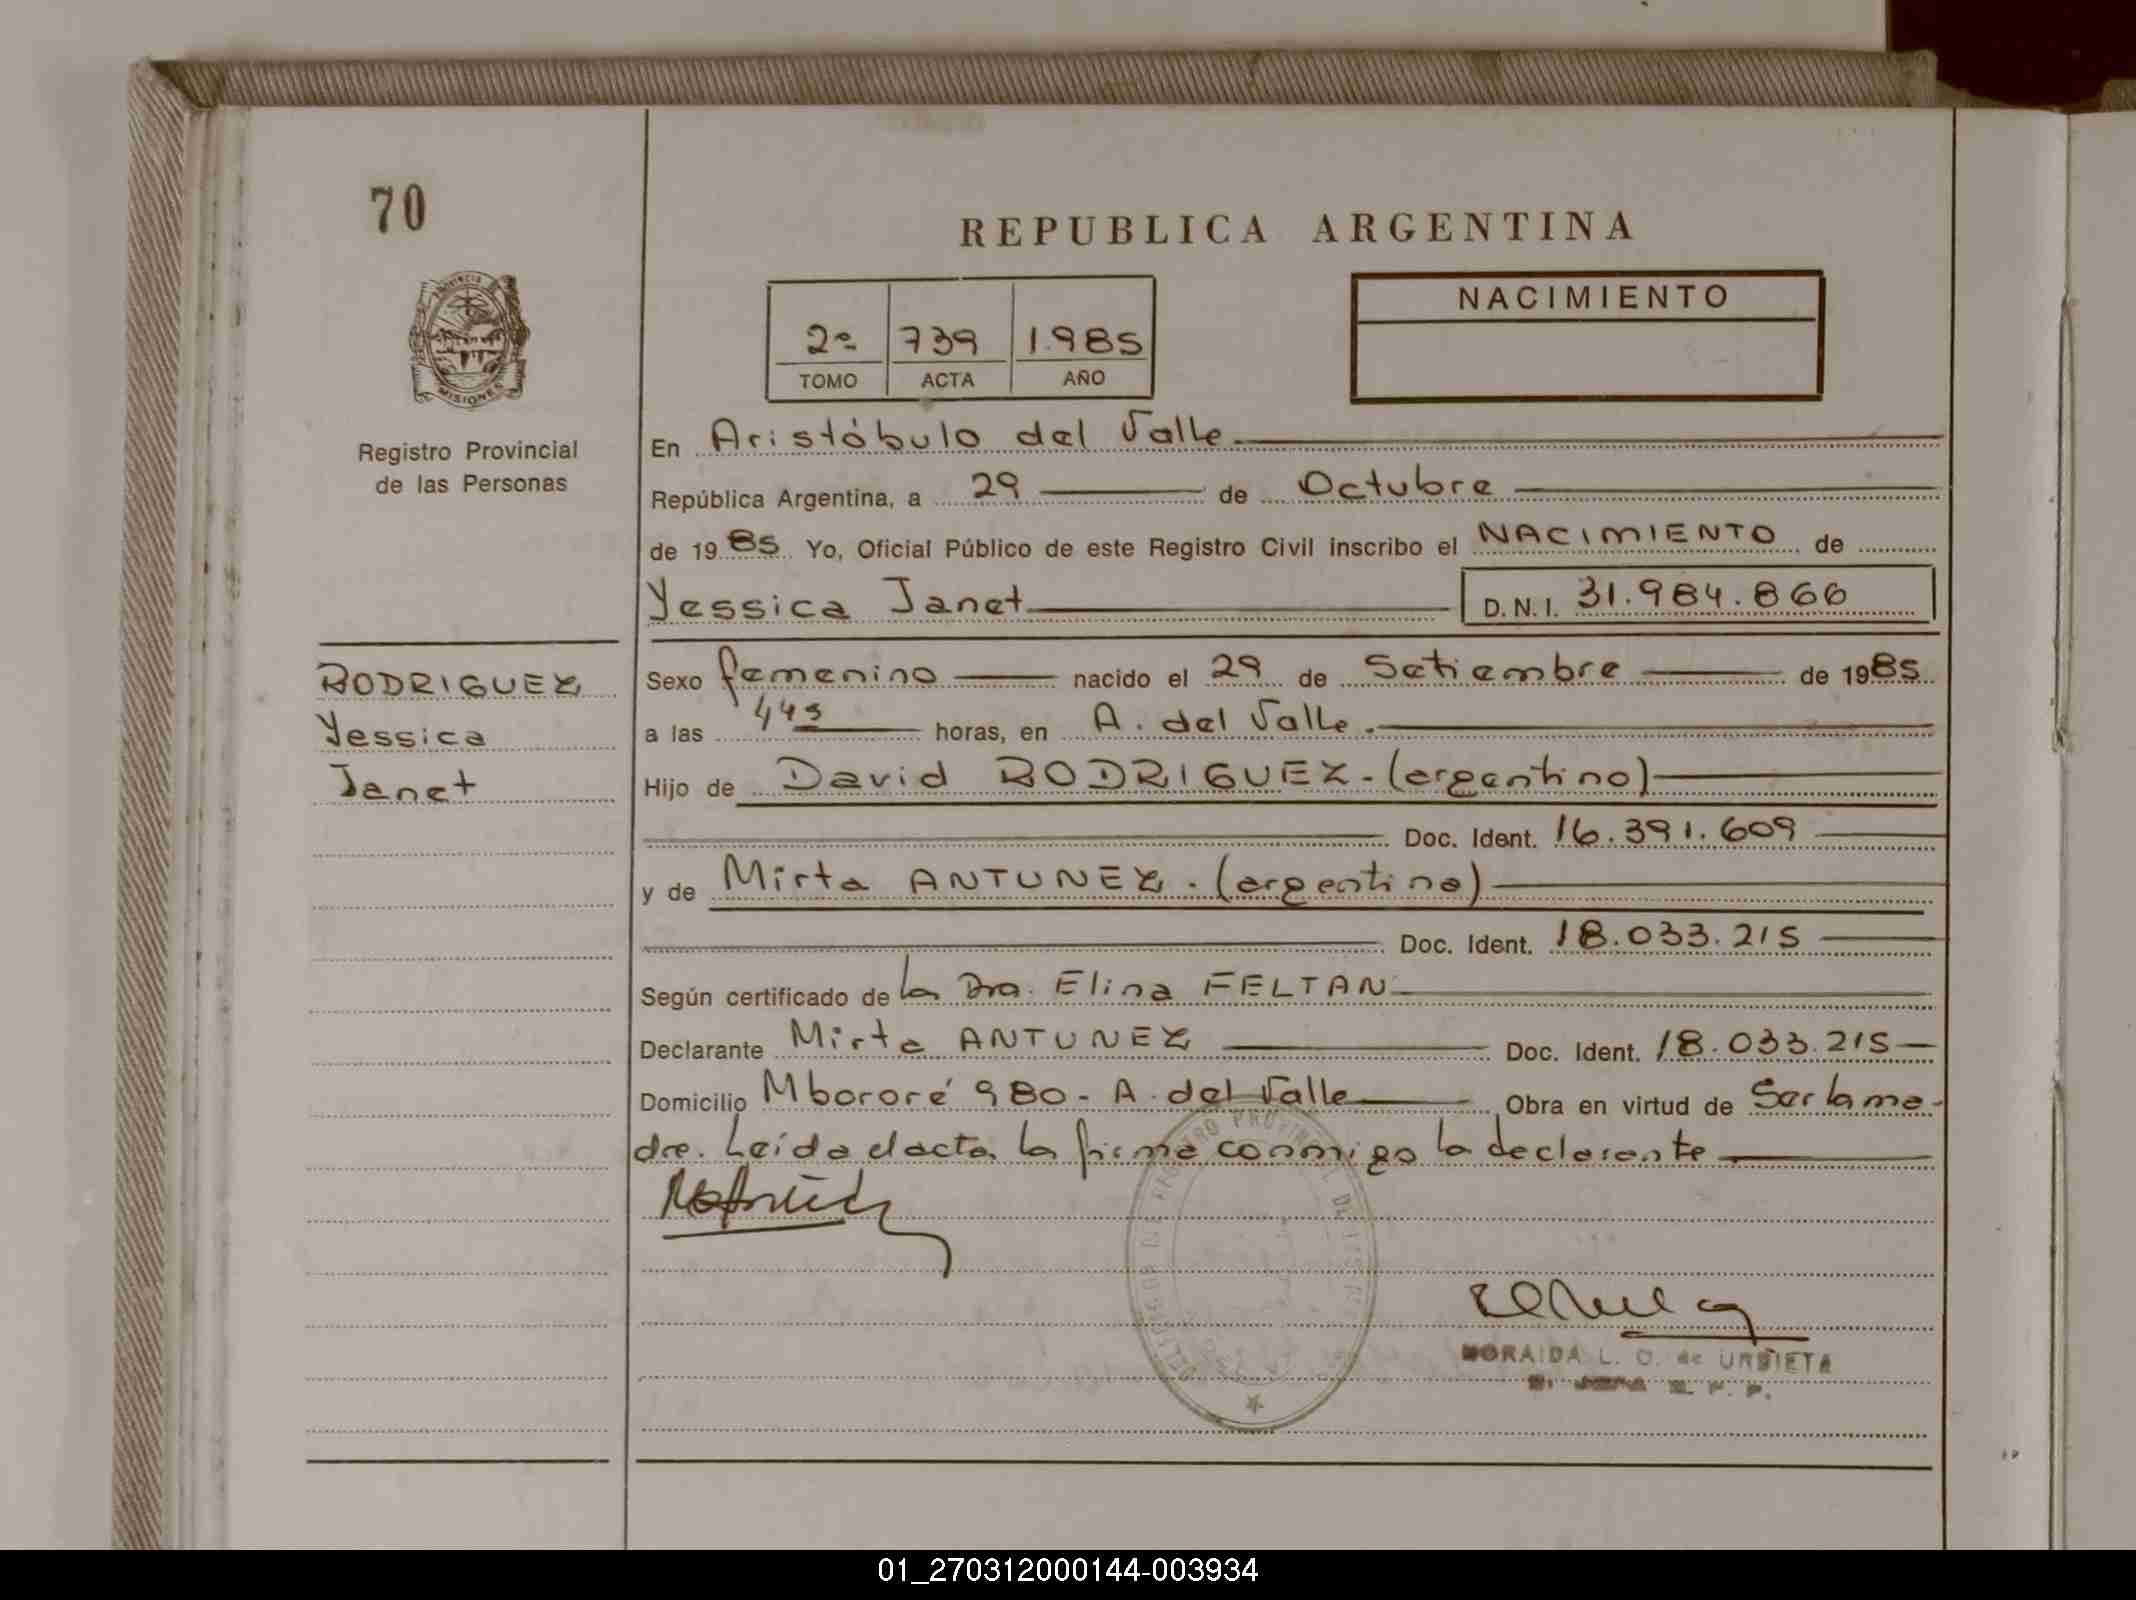 70
REPUBLICA ARGENTINA
PROVINCIA DE
MISIONES
Registro Provincial
de las Personas
2º 739 1.985
TOMO ACTA AÑO
NACIMIENTO
En Aristóbulo del Valle
República Argentina, a 29 de Octubre
de 1985 Yo, Oficial Público de este Registro Civil inscribo el NACIMIENTO de
Yessica Janet D.N.I. 31.984.866
RODRIGUEZ
Yessica
Janet
Sexo femenino nacido el 29 de Setiembre de 1985
a las 445 horas, en A. del Valle.
Hijo de David RODRIGUEZ - (argentino)
Doc. Ident. 16.391.609
y de Mirta ANTUNEZ - (argentina)
Doc. Ident. 18.033.215
Según certificado de la Dra. Elina FELTAN
Declarante Mirta ANTUNEZ Doc. Ident. 18.033.215
Domicilio Mbororé 980 - A. del Valle Obra en virtud de Ser la ma-
dre. Leída el acta, la firma conmigo la declarante
REGISTRO PROVINCIAL DE
NORAIDA L. O. de URBIETA
01_270312000144-003934